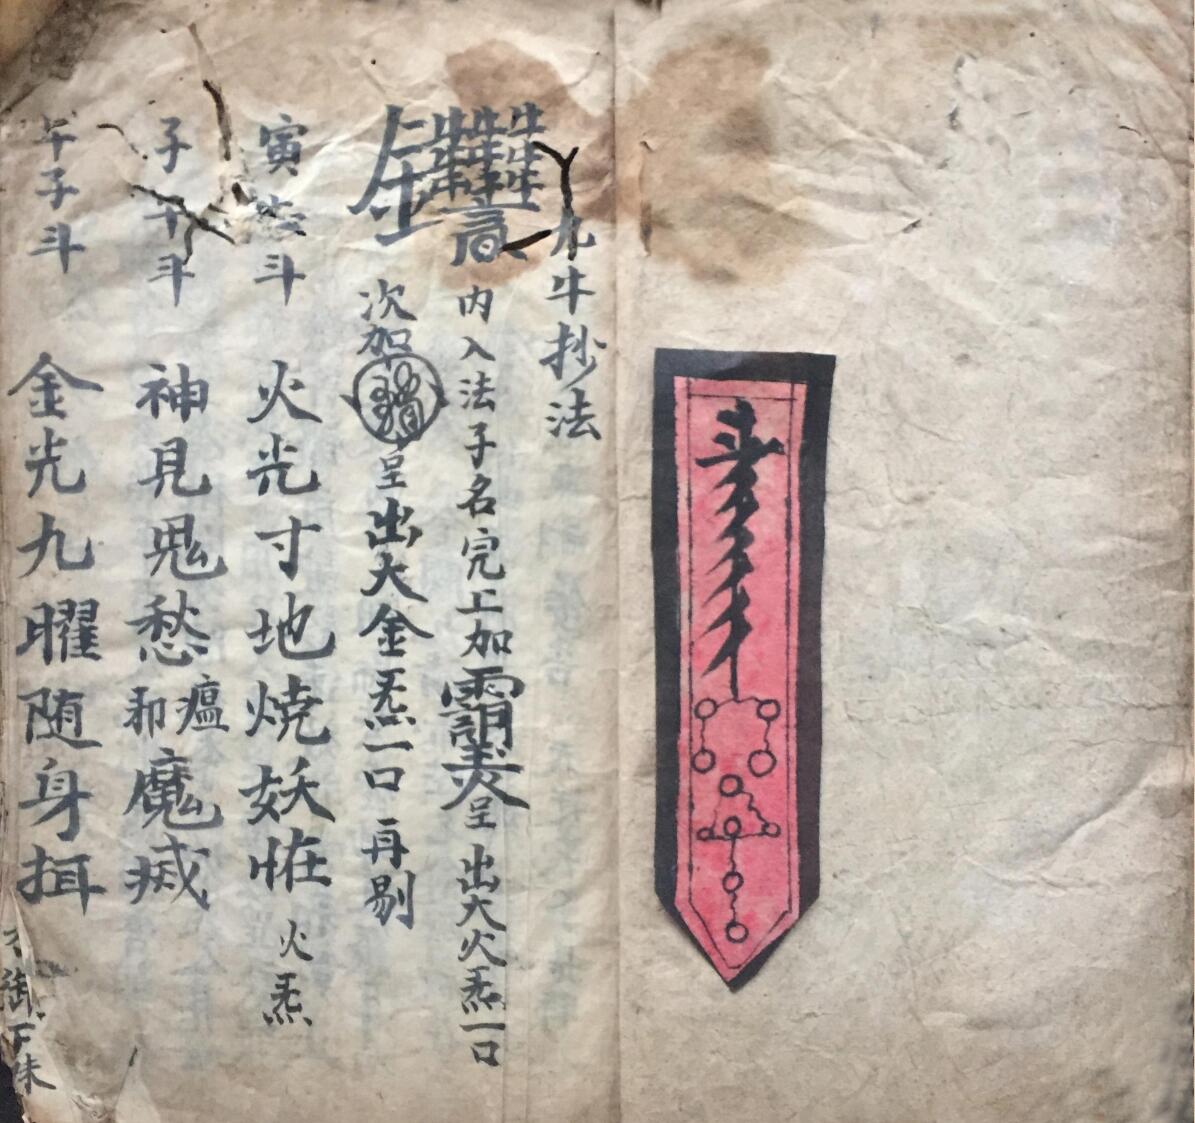 九牛抄法
内入法子名完上加 呈出大火炁一口
次加 呈出大金炁一口 再剔
寅 斗 火光寸地燒妖怪 火炁
子午斗 神見鬼愁和瘟魔滅
午子斗 金光九曜隨身 御下朱